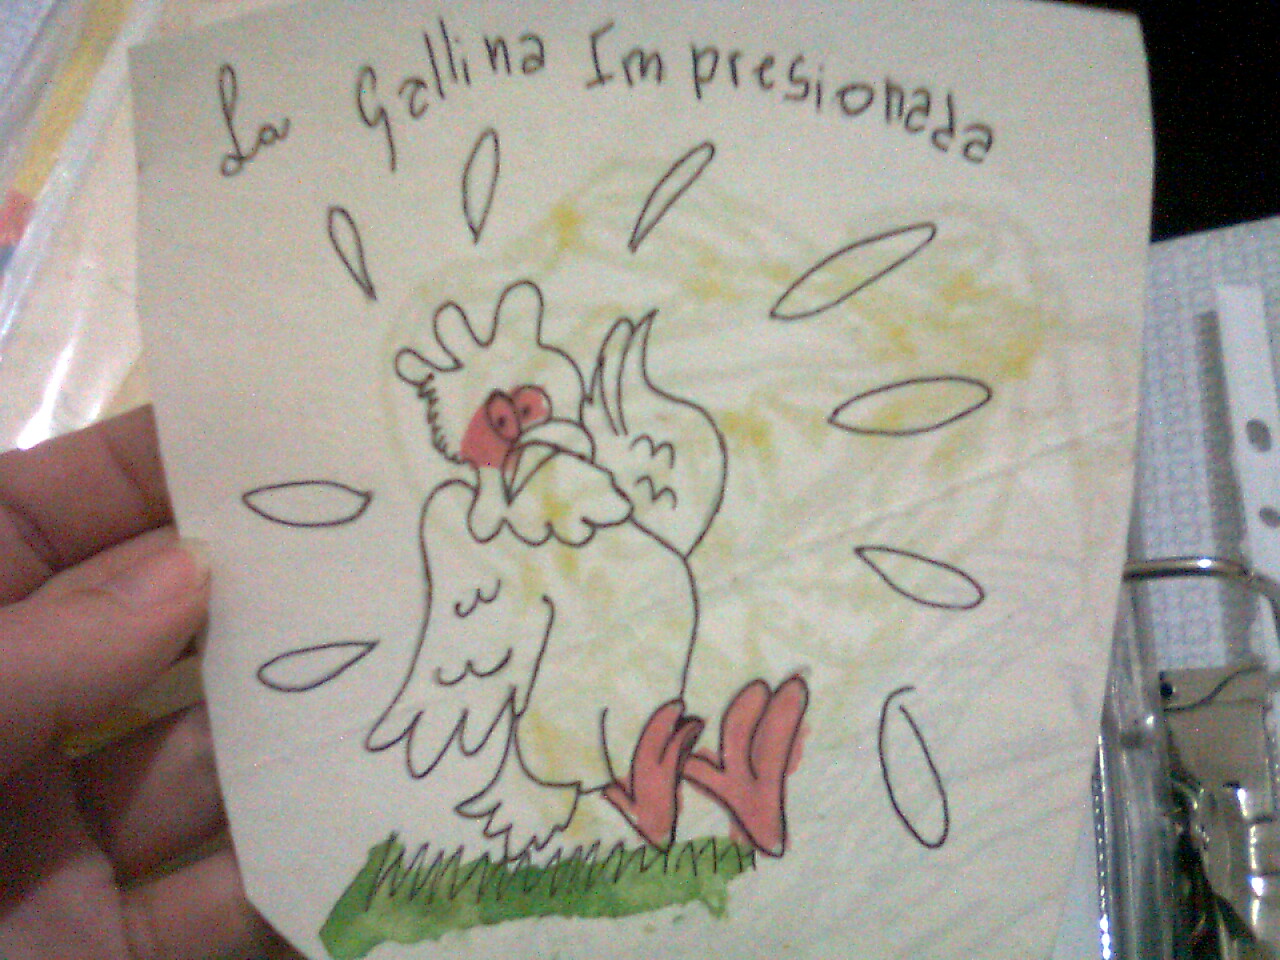 La Gallina Impresionada